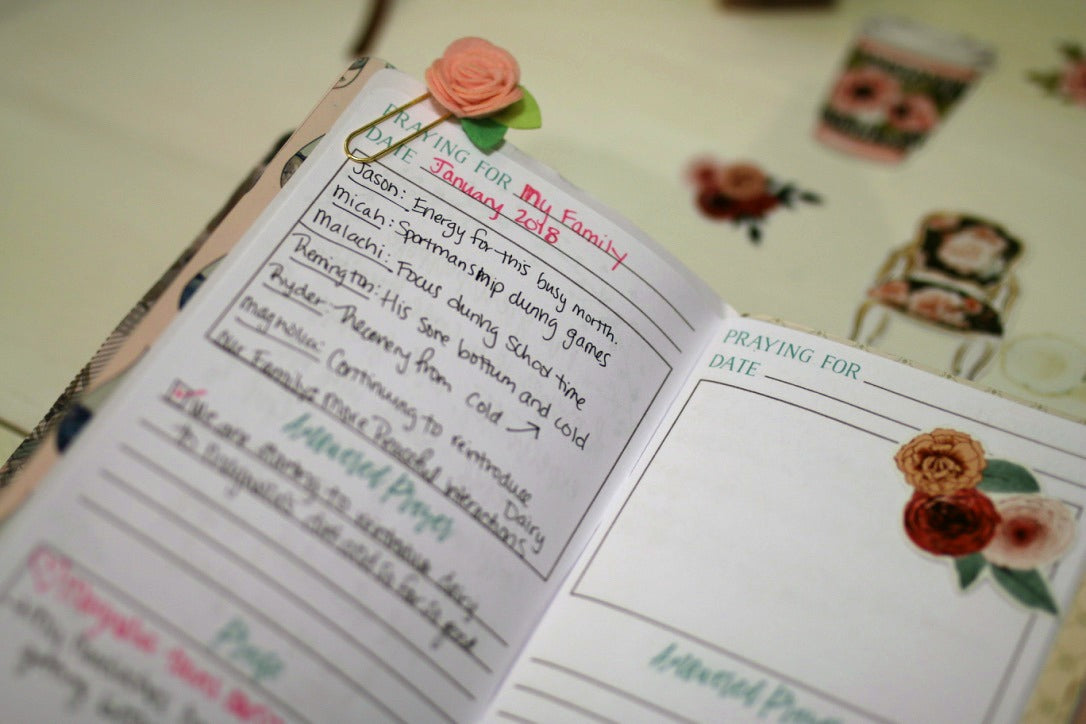 PRAYING FOR My Family
DATE January 2018
Jason: Energy for this busy month.
Micah: Sportmanship during games
Malachi: Focus during School time
Remington: His Sore bottum and cold
Ryder: Recovery from cold ↗
Magnolia: Continuing to reintroduce Dairy
Our Family: More Peaceful interactions
Answered Prayer
We are starting to reintroduce dairy
to Magnolia's diet and so far so good
Praise
Magnolia turns
PRAYING FOR
DATE
Answered Prayer